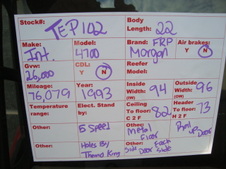 Stock#: TEP102 Body Length: 22
Make: Int. Model: 4700 Brand: FRP Reefer Morgan Air brakes: Y N
Gvw: 26,000 CDL: Y N
Mileage: 76,079 Year: 1993 Inside Width: (W) 94 Outside Width: (W) 96
Temperature range: Elect. Stand by: Ceiling To floor: C 2 F 82 Header To floor: H 2 F 73
Other: Other: 5 Speed Other: Metal Floor Other: Roll up Door
Other: Other: Holds By Thermo King Side Door